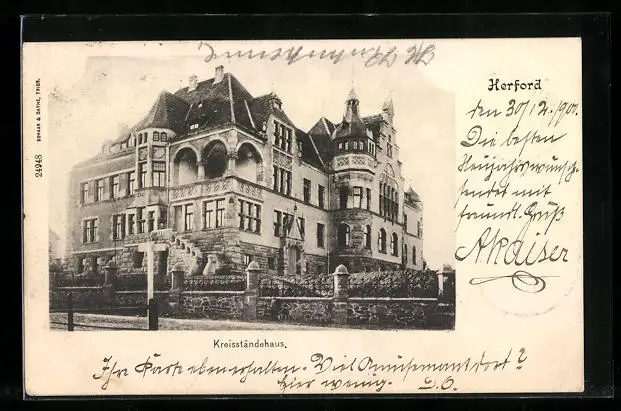 Herford
den 30/12. 1901.
Die besten
Neujahrswünsche
sendet mit
freundl. Gruß
A Kaiser
SCHAAR & DATHE, TRIER.
24948
Kreisständehaus.
Ihre Karte eben erhalten. Viel Amüsemant dort?
hier wenig. D. O.